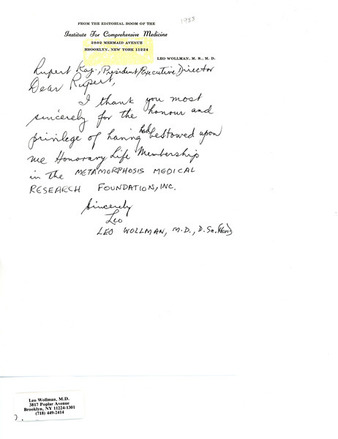 1983
FROM THE EDITORIAL ROOM OF THE
Institute For Comprehensive Medicine
2802 MERMAID AVENUE
BROOKLYN, NEW YORK 11224
LEO WOLLMAN, M. D., M. D.
Rupert Raj, President/Executive Director
Dear Rupert,
I thank you most
sincerely for the honour and
privilege of having had bestowed upon
me Honorary Life Membership
in the METAMORPHOSIS MEDICAL
RESEARCH FOUNDATION, INC.
Sincerely
Leo
LEO WOLLMAN, M.D., D.Sc.
Leo Wollman, M.D.
3817 Poplar Avenue
Brooklyn, NY 11224-1301
(718) 449-2414